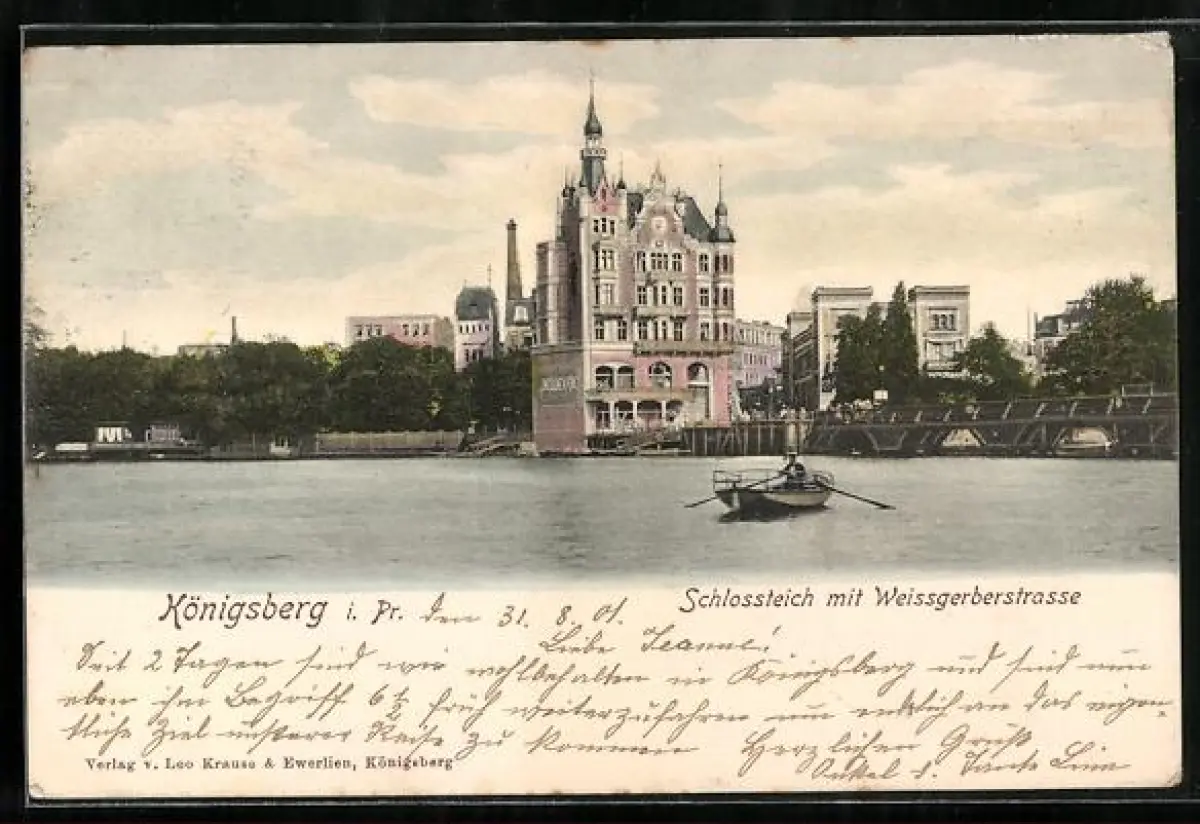 Königsberg i. Pr. den 31. 8. 01.
Schlossteich mit Weissgerberstrasse
Liebe Jeanne!
Seit 2 Tagen sind wir wohlbehalten in Königsberg und sind nun
eben im Begriff 6½ früh weiterzufahren um endlich an das eigen-
tliche Ziel unserer Reise zu kommen Herzlichen Gruß
Onkel & Tante Lina
Verlag v. Leo Krause & Ewerlien, Königsberg